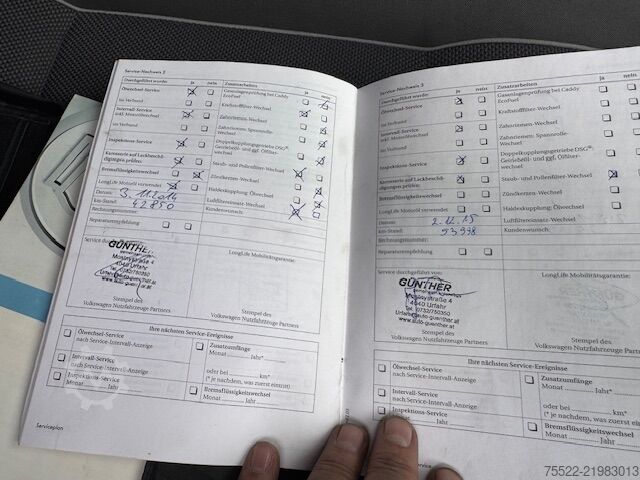 Service-Nachweis 2
Durchgeführt wurde: ja nein Zusatzarbeiten ja nein
Ölwechsel-Service Gasanlagenprüfung bei Caddy EcoFuel
im Verbund Kraftstofffilter-Wechsel
Intervall-Service inkl. Motorölwechsel Zahnriemen-Wechsel
im Verbund Zahnriemen- Spannrolle-Wechsel
Inspektions-Service Doppelkupplungsgetriebe DSG®: Getriebeöl- und ggf. Ölfilter-wechsel
Karosserie auf Lackbeschädigungen prüfen: Staub- und Pollenfilter-Wechsel
Bremsflüssigkeitswechsel Zündkerzen-Wechsel
LongLife Motoröl verwendet Haldexkupplung; Ölwechsel
Datum: 5.11.2014 Luftfiltereinsatz-Wechsel
km-Stand: 42850 Kundenwunsch:
Rechnungsnummer:
Reparaturempfehlung
Service durchgeführt von: LongLife Mobilitätsgarantie:
GÜNTHER
4040 Urfahr
Tel. 0732/750350
www.auto-guenther.at
Stempel des Volkswagen Nutzfahrzeuge Partners
Stempel des Volkswagen Nutzfahrzeuge Partners
Ihre nächsten Service-Ereignisse
Ölwechsel-Service
nach Service-Intervall-Anzeige
Intervall-Service
nach Service-Intervall-Anzeige
Inspektions-Service
Monat Jahr
Zusatzumfänge
Monat Jahr*
oder bei km*
(* je nachdem, was zuerst eintritt)
Bremsflüssigkeitswechsel
Monat Jahr
Serviceplan
Service-Nachweis 3
Durchgeführt wurde: ja nein Zusatzarbeiten ja nein
Ölwechsel-Service Gasanlagenprüfung bei Caddy EcoFuel
im Verbund Kraftstofffilter-Wechsel
Intervall-Service inkl. Motorölwechsel Zahnriemen-Wechsel
im Verbund Zahnriemen- Spannrolle-Wechsel
Inspektions-Service Doppelkupplungsgetriebe DSG®: Getriebeöl- und ggf. Ölfilter-wechsel
Karosserie auf Lackbeschädigungen prüfen: Staub- und Pollenfilter-Wechsel
Bremsflüssigkeitswechsel Zündkerzen-Wechsel
LongLife Motoröl verwendet Haldexkupplung; Ölwechsel
Datum: 2.12.15 Luftfiltereinsatz-Wechsel
km-Stand: 53998 Kundenwunsch:
Rechnungsnummer:
Reparaturempfehlung
Service durchgeführt von: LongLife Mobilitätsgarantie:
GÜNTHER
4040 Urfahr
Tel. 0732/750350
www.auto-guenther.at
Stempel des
Volkswagen Nutzfahrzeuge Partners
Ihre nächsten Service-Ereignisse
Ölwechsel-Service
nach Service-Intervall-Anzeige
Intervall-Service
nach Service-Intervall-Anzeige
Inspektions-Service
Jahr
Zusatzumfänge
Monat Jahr*
oder bei km*
(* je nachdem, was zuerst
Bremsflüssigkeitswechsel
Monat Jahr
75522-21983013